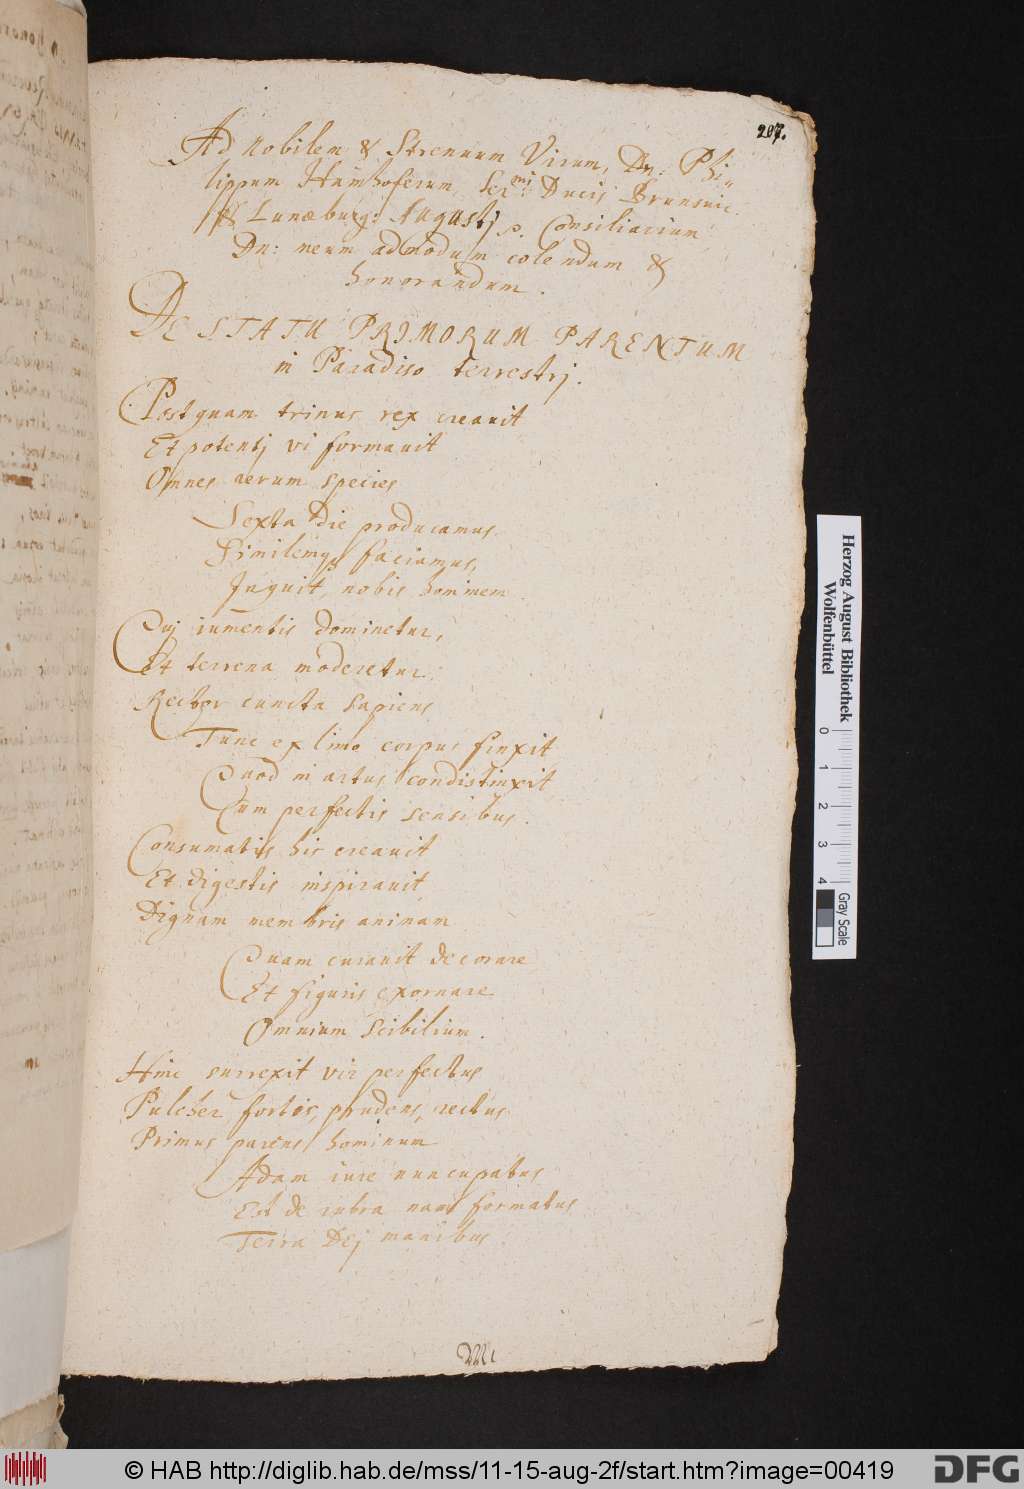 207.
Ad Nobilem & Strenuum Virum, Dn: Phi„
lippum Hainhoferum, Ser.mi Ducis Brunsuic.
& Lunæburg: Augustj p. Consiliarium
Dn: meum admodum colendum &
honorandum.
DE STATU PRIMORUM PARENTUM
in Paradiso terrestrj.
Postquam trinus rex creauit
Et potentj vi formauit
Omnes rerum species
Sexta die producamus
Similemq; faciamus,
Inquit, nobis hominem
Cuj iumentis dominetur,
Et terrena moderetur
Rector cuncta sapiens
Tunc ex limo corpus finxit
Quod in artus condistinxit
Cum perfectis sensibus.
Consumatis his creauit
Et digestis inspirauit
Dignam membris animam
Quam curauit decorare
Et figuris exornare
Omnium scibilium.
Hinc surrexit vir perfectus
Pulcher fortis, prudens, rectus
Primus parens hominum
Adam iure nuncupatus
Est de rubra nam formatus
Terra Dej manibus
Herzog August Bibliothek
Wolfenbüttel
0 1 2 3 4
Gray Scale
© HAB http://diglib.hab.de/mss/11-15-aug-2f/start.htm?image=00419
DFG